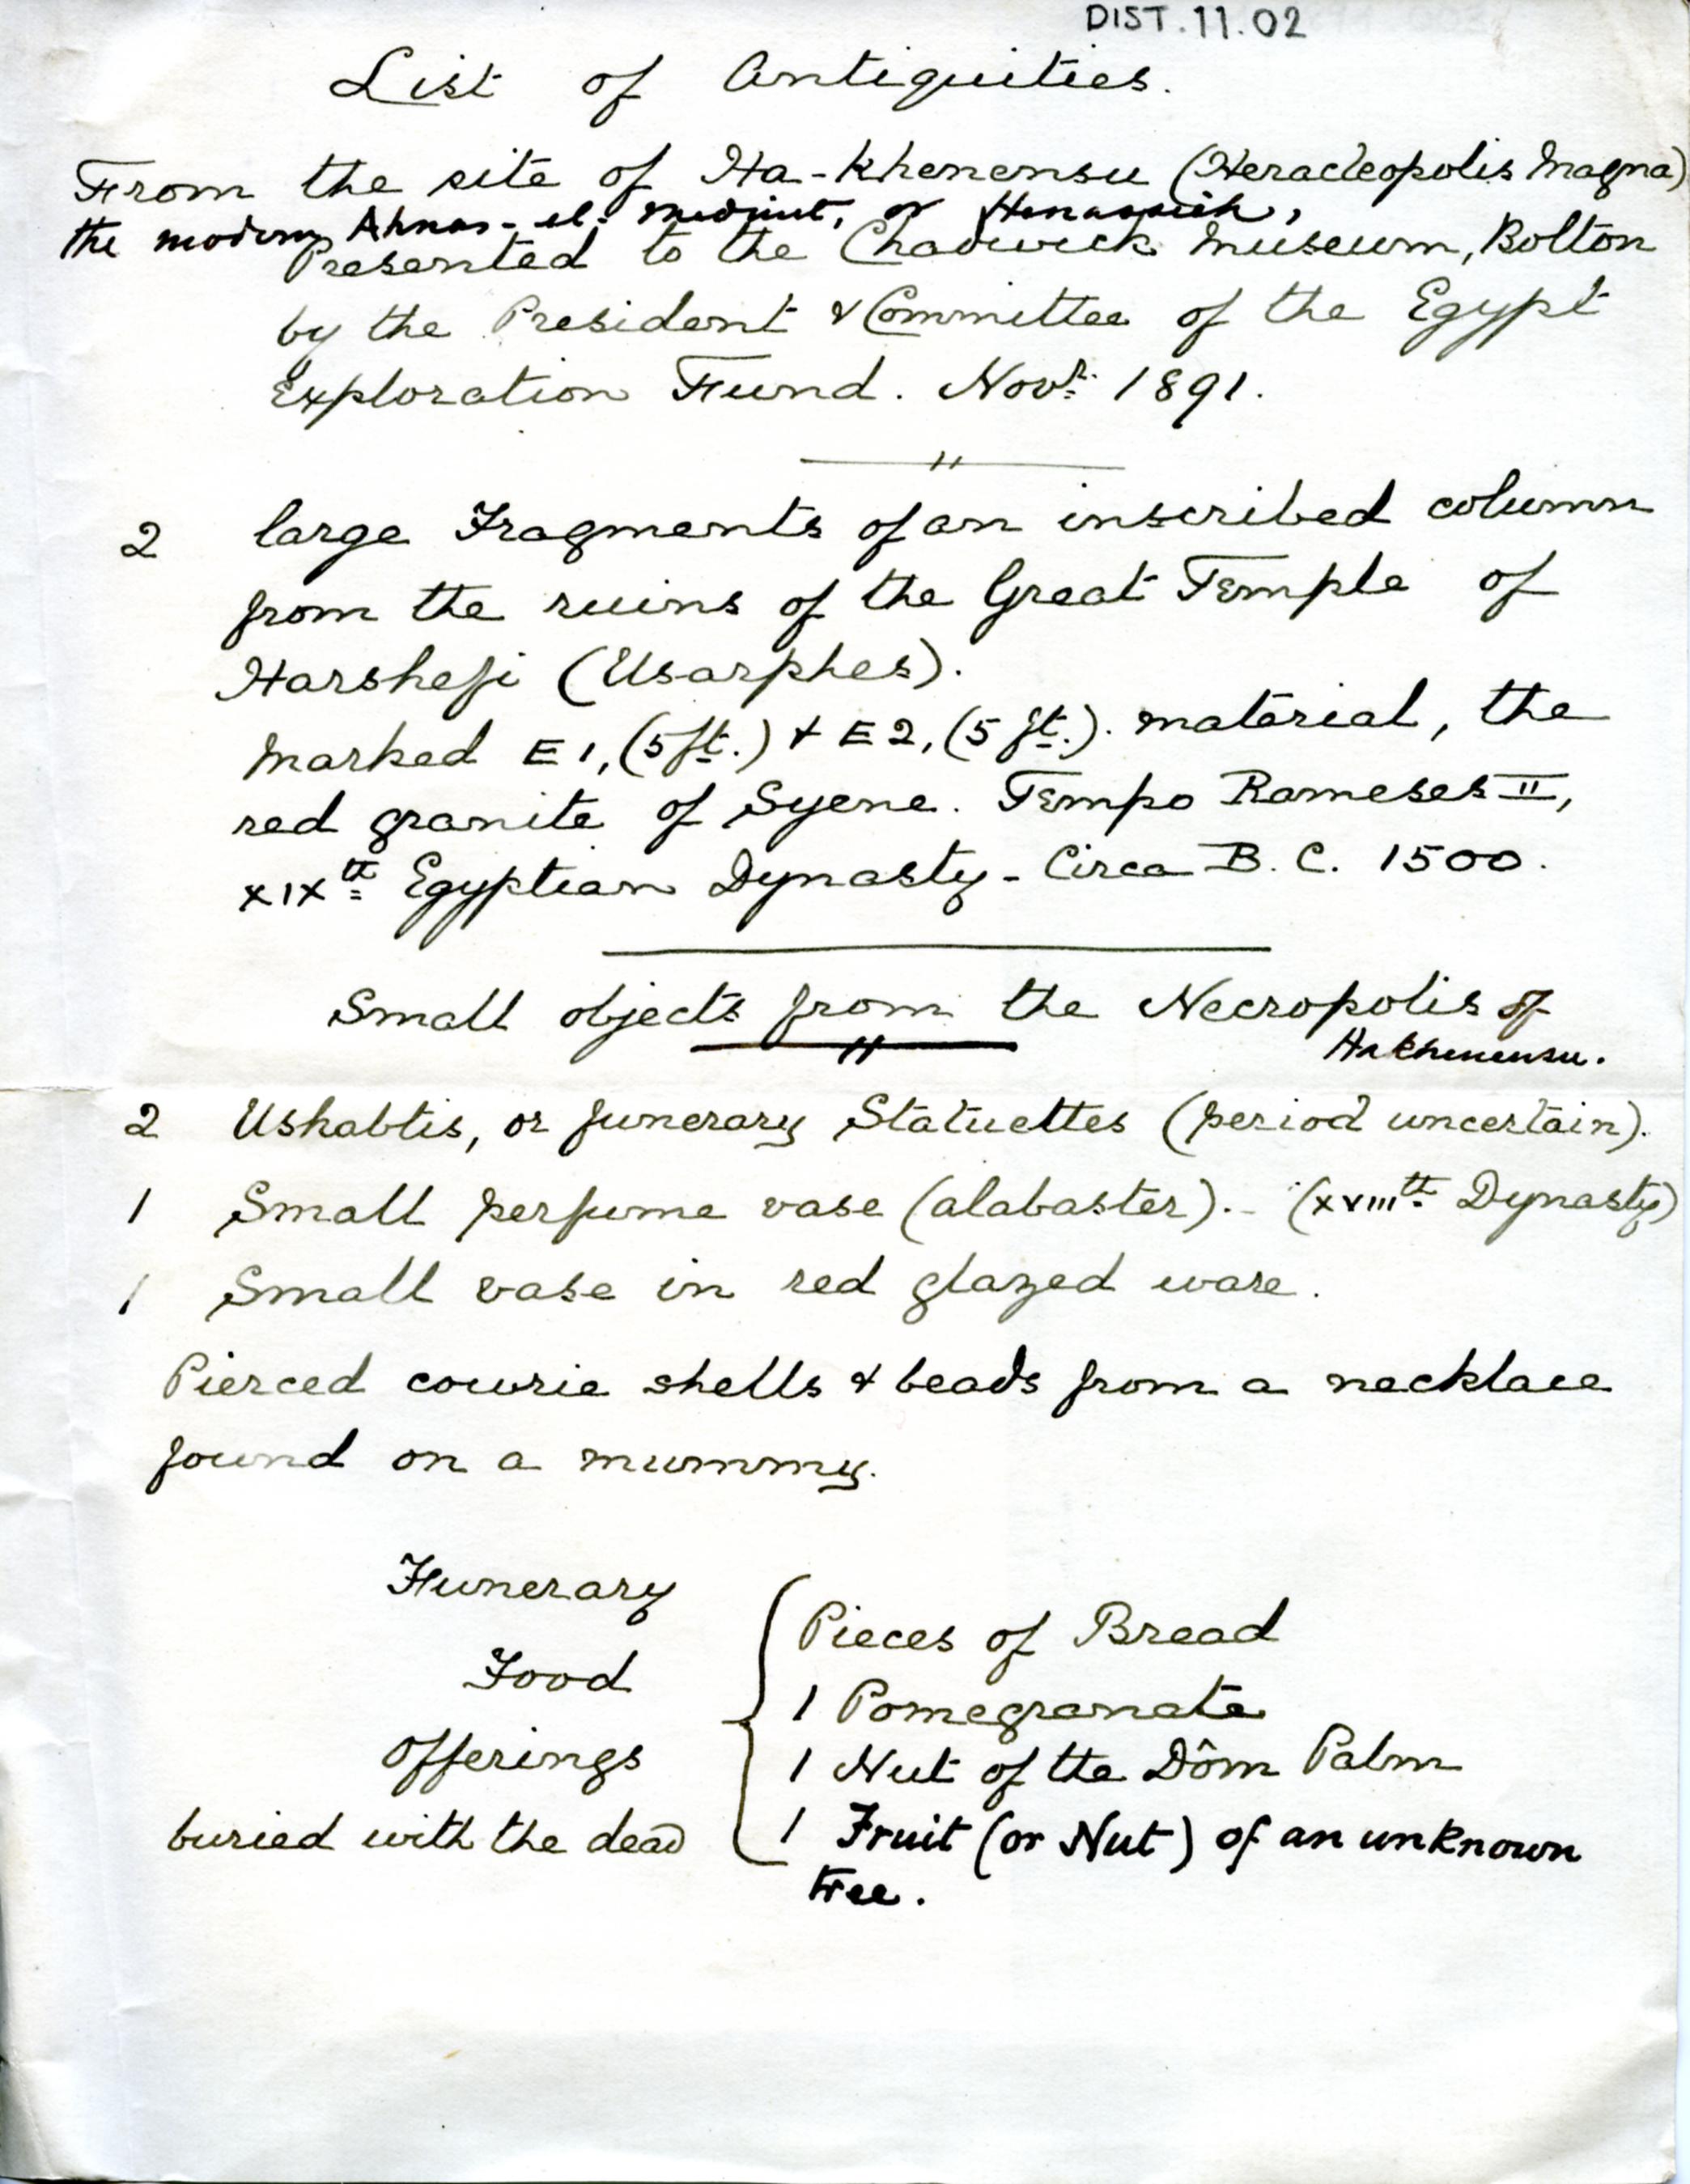 DIST.11.02
List of Antiquities.
From the site of Ha-Khenensu (Heracleopolis Magna)
the modern Ahnas-el-Medinet, or Henassieh,
Presented to the Chadwick Museum, Bolton
by the President & Committee of the Egypt
Exploration Fund. Novr. 1891.
"
2 large Fragments of an inscribed column
from the ruins of the Great Temple of
Harshefi (Usarphes).
Marked E1, (5 ft.) & E2, (5 ft.). Material, the
red granite of Syene. Tempo Rameses II,
XIXth Egyptian Dynasty - Circa B.C. 1500.
Small objects from the Necropolis of
Hakhenensu.
"
2 Ushabtis, or funerary Statuettes (period uncertain).
1 Small perfume vase (alabaster). - (XVIIIth Dynasty)
1 Small vase in red glazed ware.
Pierced cowrie shells & beads from a necklace
found on a mummy.
Funerary
Food
Offerings
buried with the dead
Pieces of Bread
1 Pomegranate
1 Nut of the Dôm Palm
1 Fruit (or Nut) of an unknown
tree.